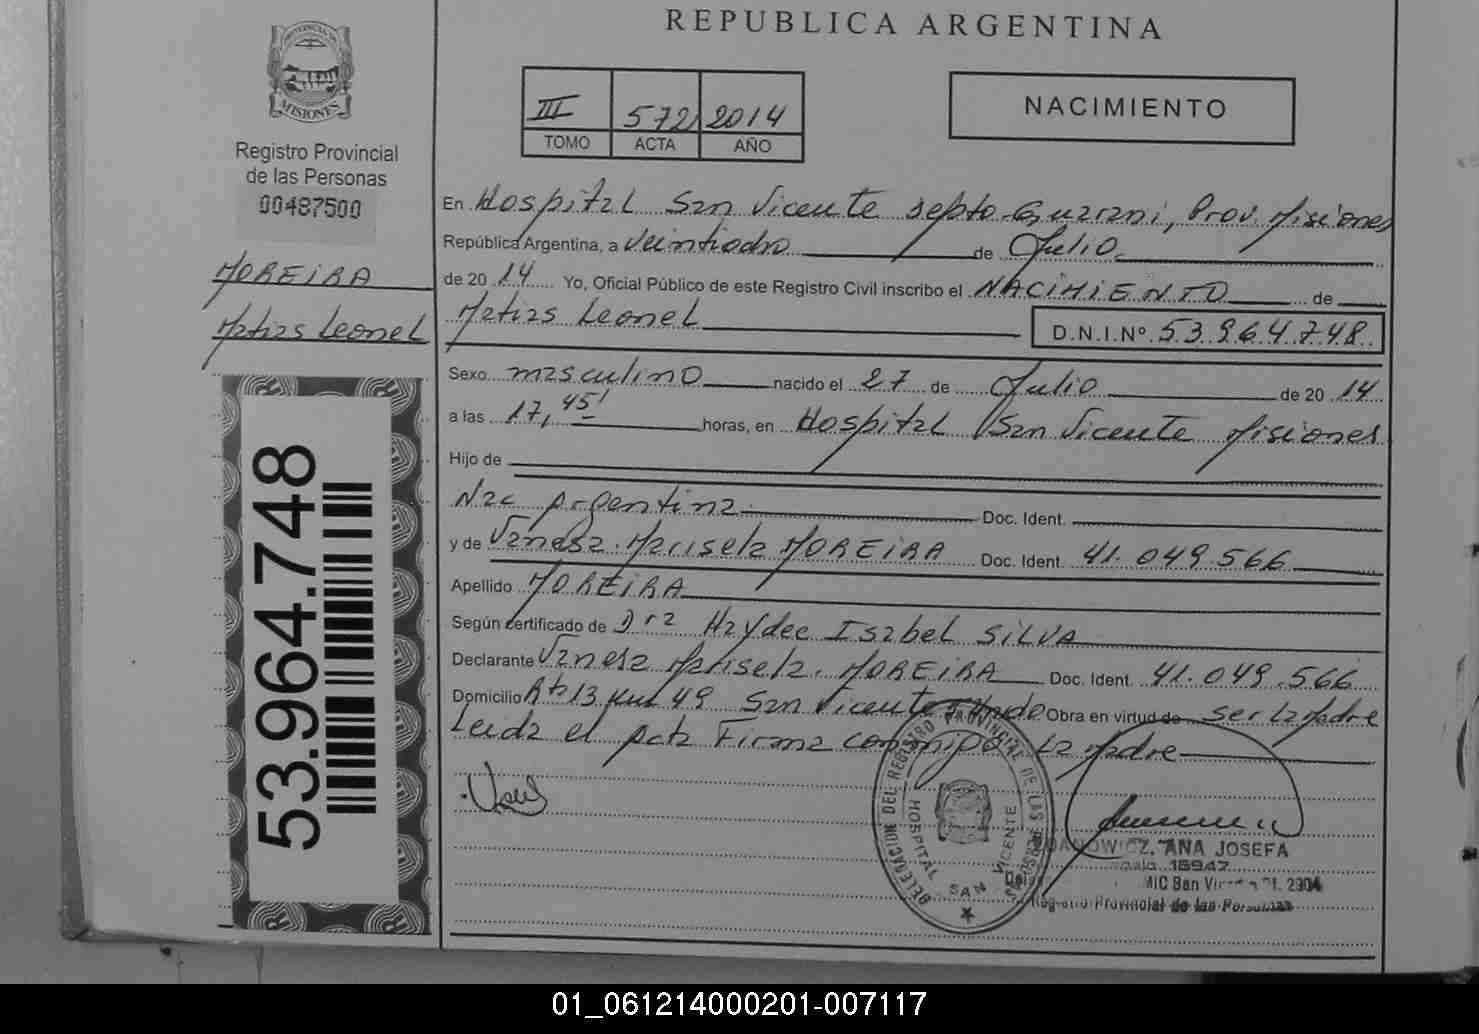 REPUBLICA ARGENTINA
PROVINCIA DE
MISIONES
Registro Provincial
de las Personas
00487500
MOREIRA
Matias Leonel
53.964.748
III 572 2014
TOMO ACTA AÑO
NACIMIENTO
En Hospital San Vicente Depto. Guarani, Prov. Misiones
República Argentina, a de Julio
de 20 14 Yo, Oficial Público de este Registro Civil inscribo el NACIMIENTO de
Matias Leonel D.N.I.Nº 53964748
Sexo masculino nacido el 27 de Julio de 20 14
a las 17,45' horas, en Hospital San Vicente Misiones
Hijo de
Nac Argentina Doc. Ident.
y de Vanesa Marisela MOREIRA Doc. Ident. 41.049.566
Apellido MOREIRA
Según certificado de Dra Haydee Isabel SILVA
Declarante Vanesa Marisela MOREIRA Doc. Ident. 41.049.566
Domicilio Rta 13 Km 49 San Vicente Obra en virtud de ser la Madre
Leida el acta Firma conmigo La Madre
DELEGACION DEL REGISTRO PROVINCIAL DE LAS PERSONAS
HOSPITAL SAN VICENTE
ANA JOSEFA
15947
Registro Provincial de las Personas
01_061214000201-007117